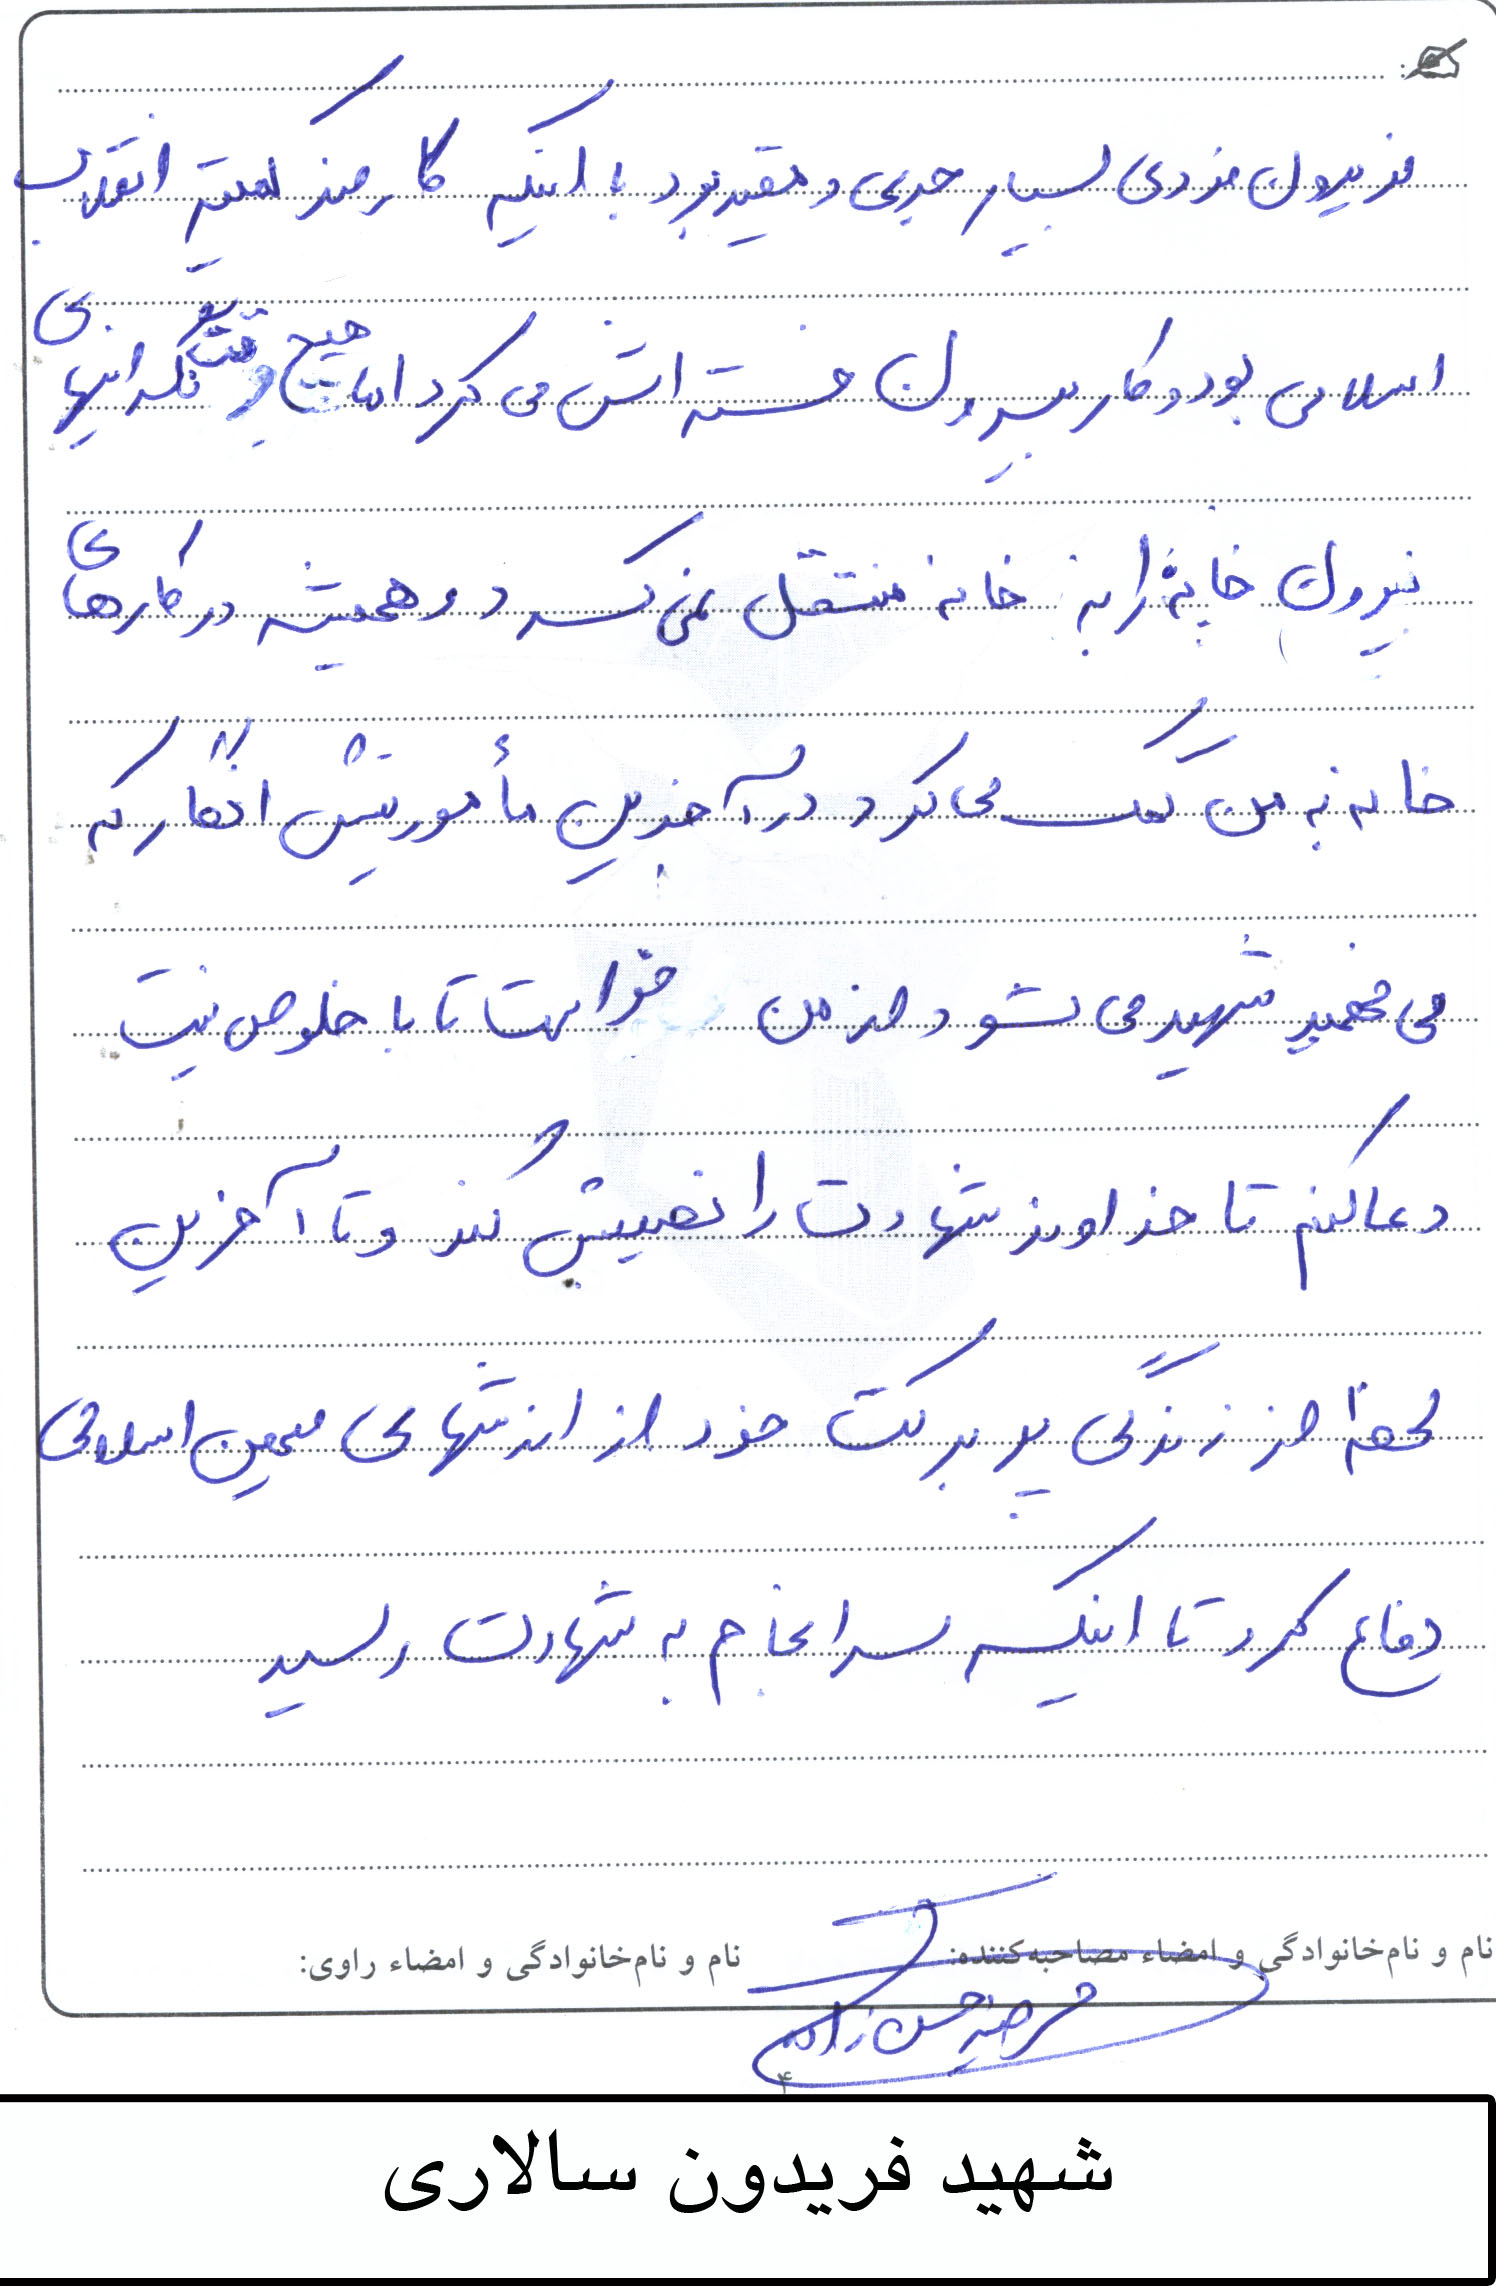 فریدون فردی بسیار جدی و مقید بود با اینکه کارمند کمیته انقلاب
اسلامی بود و کار بیرون خسته اش می کرد اما هیچ وقت نگرانیهای
بیرون خانه را به خانه منتقل نمی کرد و همیشه در کارهای
خانه به من کمک می کرد در آخرین مأموریتش انگار که
می فهمید شهید می شود از من خواست تا با خلوص نیت
دعا کنم تا خداوند شهادت را نصیبش کند و تا آخرین
لحظه از زندگی پر برکت خود از ارزشهای میهن اسلامی
دفاع کرد تا اینکه سرانجام به شهادت رسید
نام و نام‌خانوادگی و امضاء مصاحبه‌کننده:
نام و نام‌خانوادگی و امضاء راوی:
مرضیه حسن زاده
۴
شهید فریدون سالاری